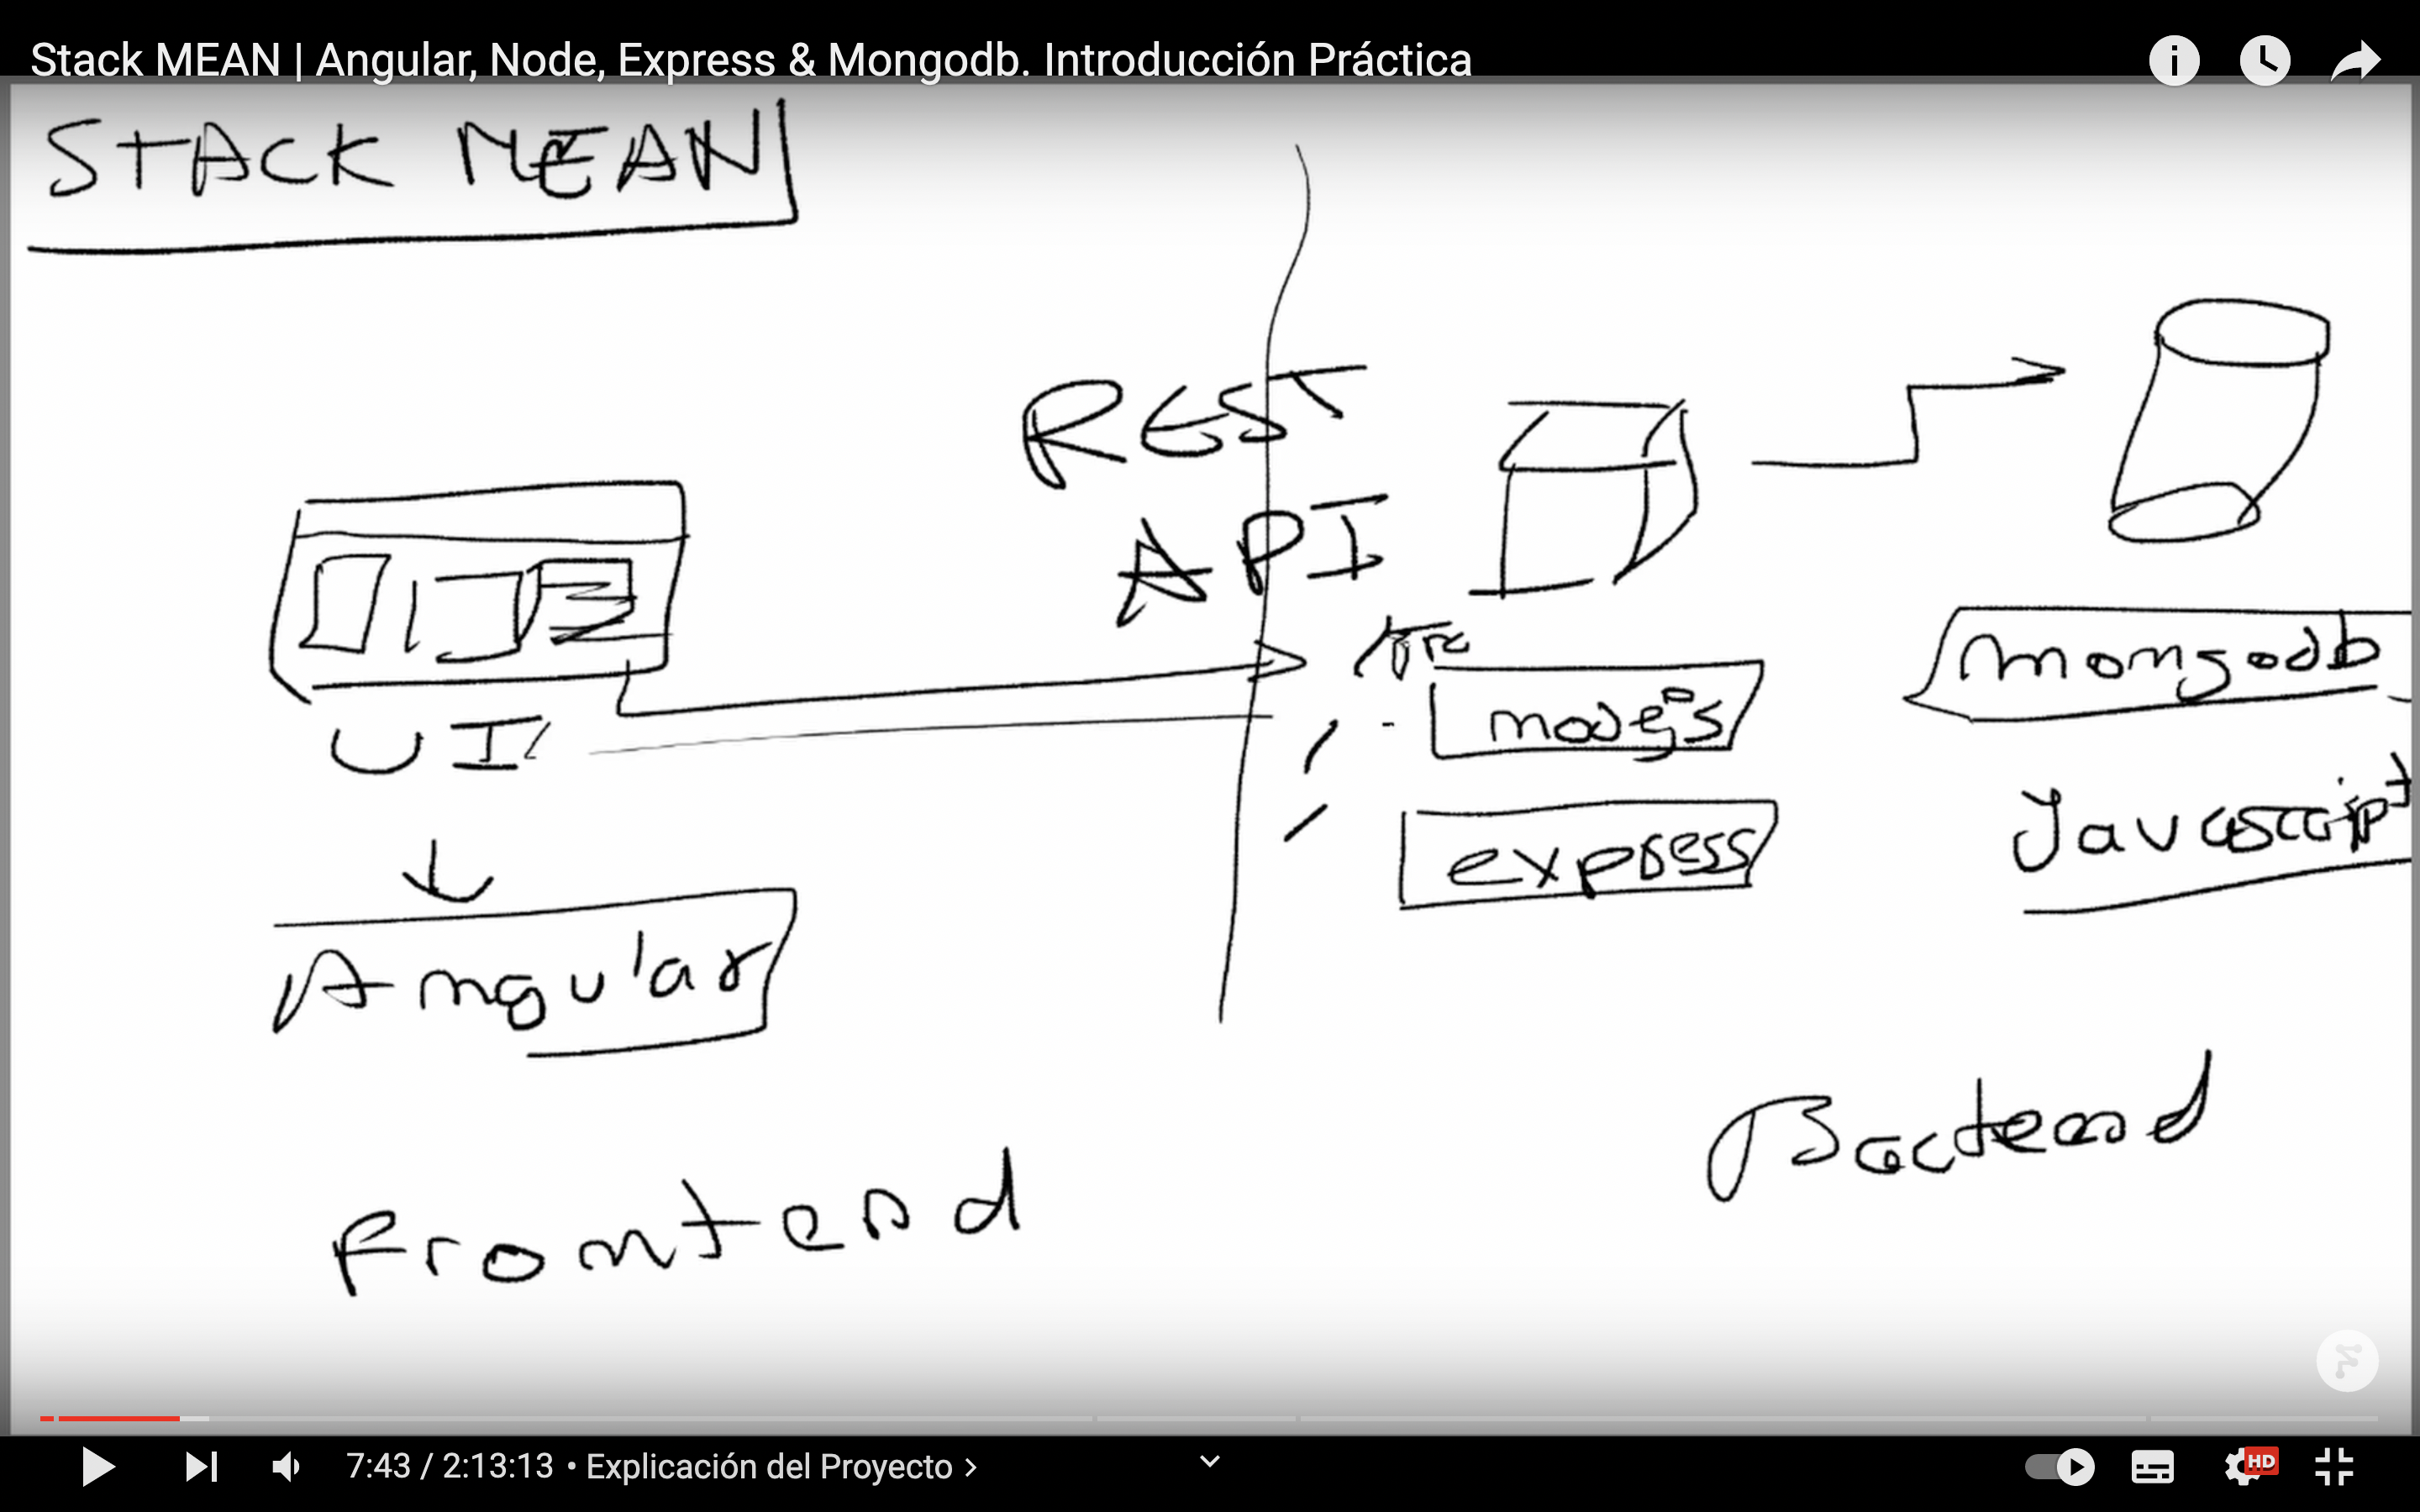 Stack MEAN | Angular, Node, Express & Mongodb. Introducción Práctica
STACK MEAN
REST
API
UI
nodejs
express
mongodb
Javascript
Angular
Frontend
Backend
7:43 / 2:13:13 • Explicación del Proyecto
HD